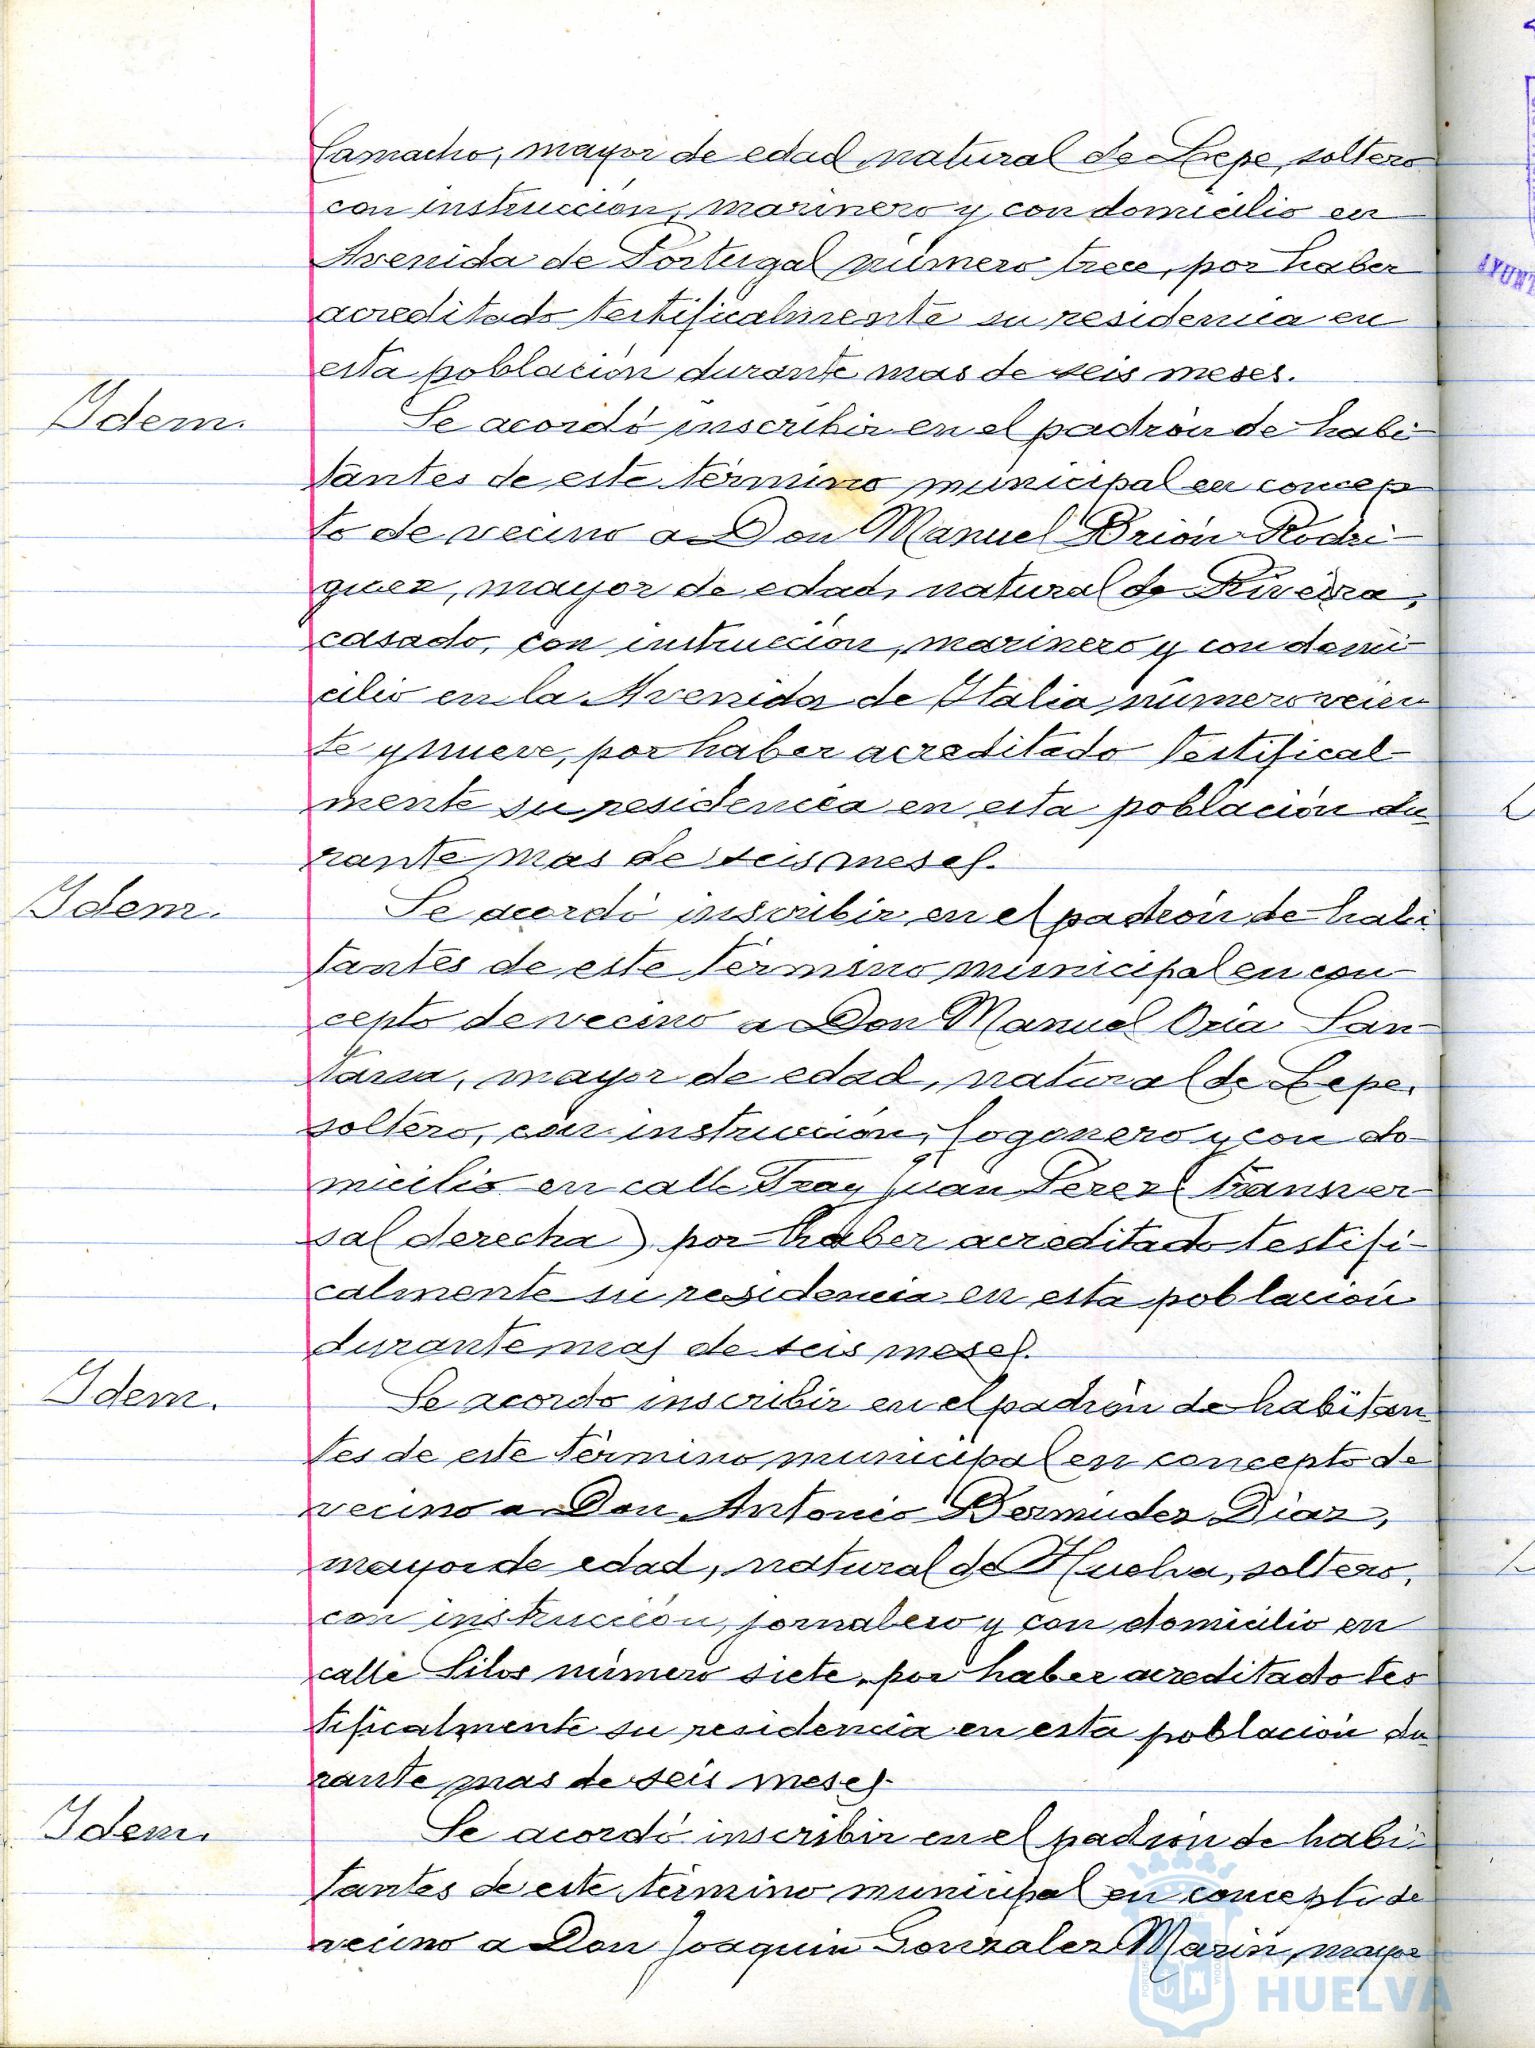 Camacho, mayor de edad natural de Lepe, soltero
con instrucción, marinero y con domicilio en
Avenida de Portugal número trece, por haber
acreditado testificalmente su residencia en
esta población durante mas de seis meses.
Idem.
Se acordó inscribir en el padrón de habi-
tantes de este término municipal en concep
to de vecino a Don Manuel Brión Rodri-
guez, mayor de edad, natural de Riveira,
casado, con instrucción, marinero y con domi-
cilio en la Avenida de Italia número vein
te y nueve, por haber acreditado testifical-
mente su residencia en esta población du-
rante mas de seis meses.
Idem.
Se acordó inscribir en el padrón de habi
tantes de este término municipal en con-
cepto de vecino a Don Manuel Oria San-
tana, mayor de edad, natural de Lepe,
soltero, con instrucción, fogonero y con do-
micilio en calle Fray Juan Perez (transver-
sal derecha) por haber acreditado testifi-
calmente su residencia en esta población
durante mas de seis meses.
Idem.
Se acordo inscribir en el padrón de habitan
tes de este término municipal en concepto de
vecino a Don Antonio Bermudez Diaz,
mayor de edad, natural de Huelva, soltero,
con instrucción, jornalero y con domicilio en
calle Silos número siete, por haber acreditado tes
tificalmente su residencia en esta población du
rante mas de seis meses.
Idem.
Se acordó inscribir en el padrón de habi-
tantes de este término municipal en concepto de
vecino a Don Joaquin Gonzalez Marin, mayor
Ayuntamiento de
HUELVA
AYUNT